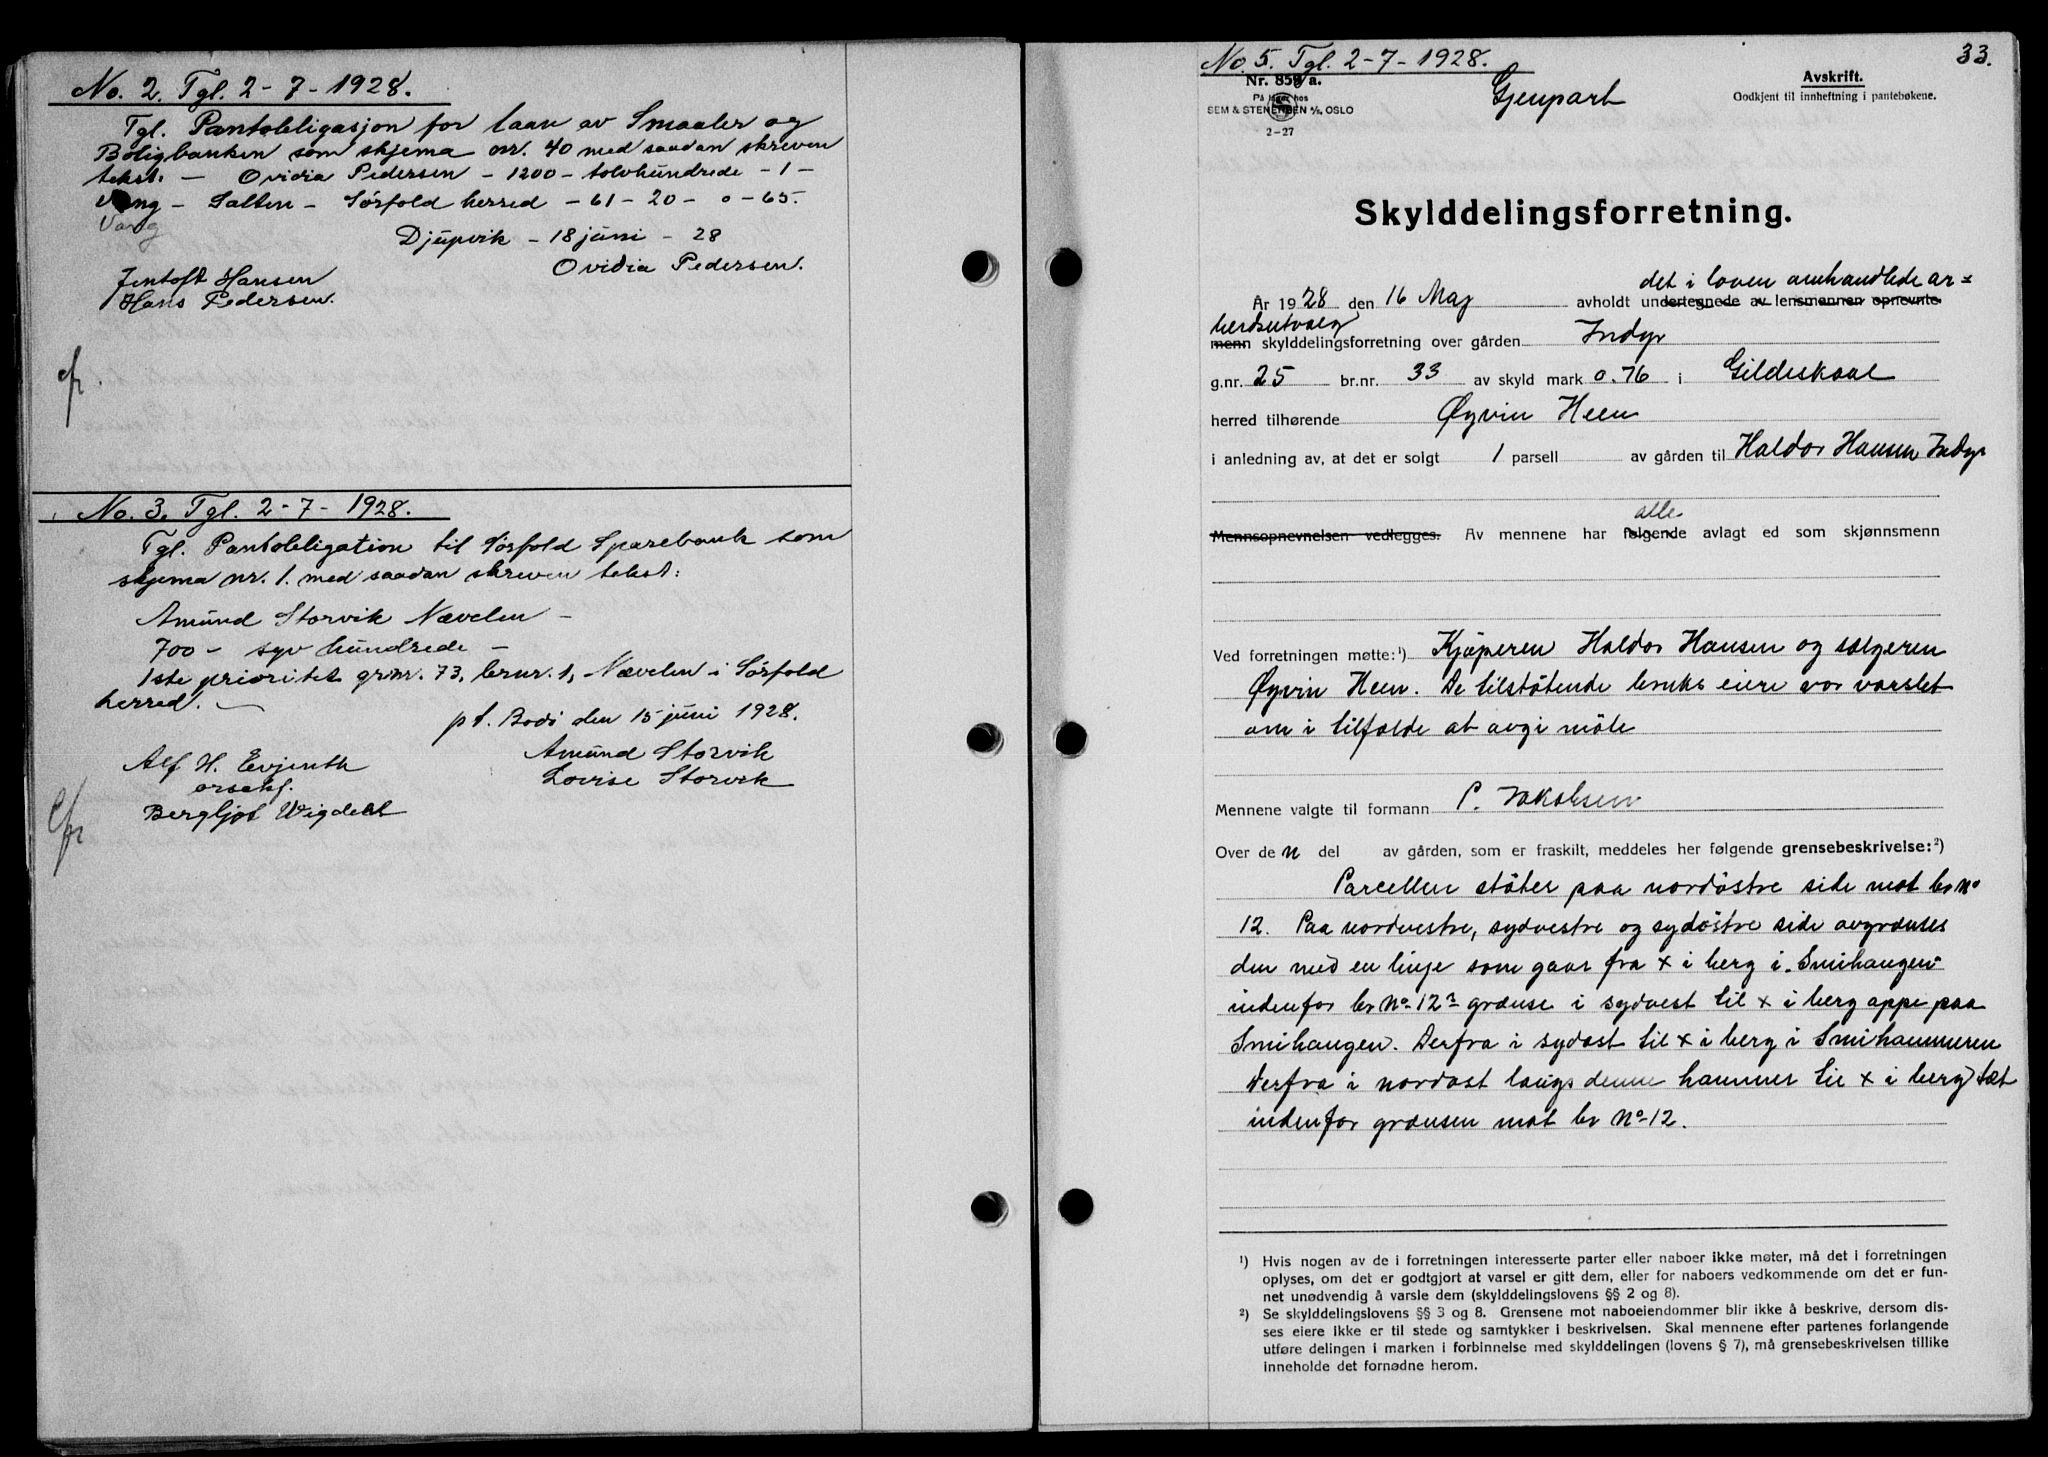 No. 2. Tgl. 2-7-1928.
Tgl. Pantobligasjon for laan av Smaaler og
Boligbanken som skjema nr. 40 med saadan skreven
tekst. — Ovidia Pedersen — 1200 — tolvhundrede — 1 —
Vang — Salten — Sörfold herred — 61 — 20 — 0 — 65.
Vang
Djupvik — 18 juni — 28
Ovidia Pedersen.
Jentoft Hansen
Hans Pedersen.
cfr.
No. 3. Tgl. 2-7-1928.
Tgl. Pantobligation til Sörfold Sparebank som
skjema nr. 1. med saadan skreven tekst:
Amund Storvik Nævelen —
700 — syv hundrede —
1ste prioritet grnr. 73, brnr. 1, Nævelen i Sörfold
herred. —
pt. Bodö den 15 juni 1928.
Amund Storvik
Lovise Storvik
Alf H. Evjenth
orsakf.
Bergljot Wigdehl
cfr
33.
No. 5. Tgl. 2-7-1928.
Nr. 859/a.
På lager hos
SEM & STENERSEN A/S, OSLO
2-27
Gjenpart
Avskrift.
Godkjent til innheftning i pantebøkene.
Skylddelingsforretning.
det i loven omhandlede ar=
År 1928 den 16 Maj avholdt undertegnede av lensmannen opnevnte
berdsutvalg
menn skylddelingsforretning over gården Indyr
g.nr. 25 br.nr. 33 av skyld mark 0.76 i Gildeskaal
herred tilhørende Øyvin Heen
i anledning av, at det er solgt 1 parsell av gården til Haldor Hansen Indyr
alle
Mennsopnevnelsen vedlegges. Av mennene har følgende avlagt ed som skjønnsmenn
Ved forretningen møtte:¹) Kjöperen Haldor Hansen og sælgeren
Øyvin Heen. De tilstötende bruks eiere var varslet
om i tilfælde at avgi möte
Mennene valgte til formann P. Jakobsen
Over den del av gården, som er fraskilt, meddeles her følgende grensebeskrivelse:²)
Parcellen stöter paa nordöstre side mot br No
12. Paa nordvestre, sydvestre og sydöstre side avgrænses
den med en linje som gaar fra × i berg i Smihaugen
indenfor br No-12s grænse i sydvest til × i berg oppe paa
Smihaugen. Derfra i sydost til × i berg i Smihammeren
derfra i nordost langs denne hammer til × i berg tæt
indenfor grænsen mot br No-12.
¹) Hvis nogen av de i forretningen interesserte parter eller naboer ikke møter, må det i forretningen
oplyses, om det er godtgjort at varsel er gitt dem, eller for naboers vedkommende om det er fun-
net unødvendig å varsle dem (skylddelingslovens §§ 2 og 8).
²) Se skylddelingslovens §§ 3 og 8. Grensene mot naboeiendommer blir ikke å beskrive, dersom dis-
ses eiere ikke er til stede og samtykker i beskrivelsen. Skal mennene efter partenes forlangende
utføre delingen i marken i forbinnelse med skylddelingen (lovens § 7), må grensebeskrivelsen tillike
inneholde det fornødne herom.